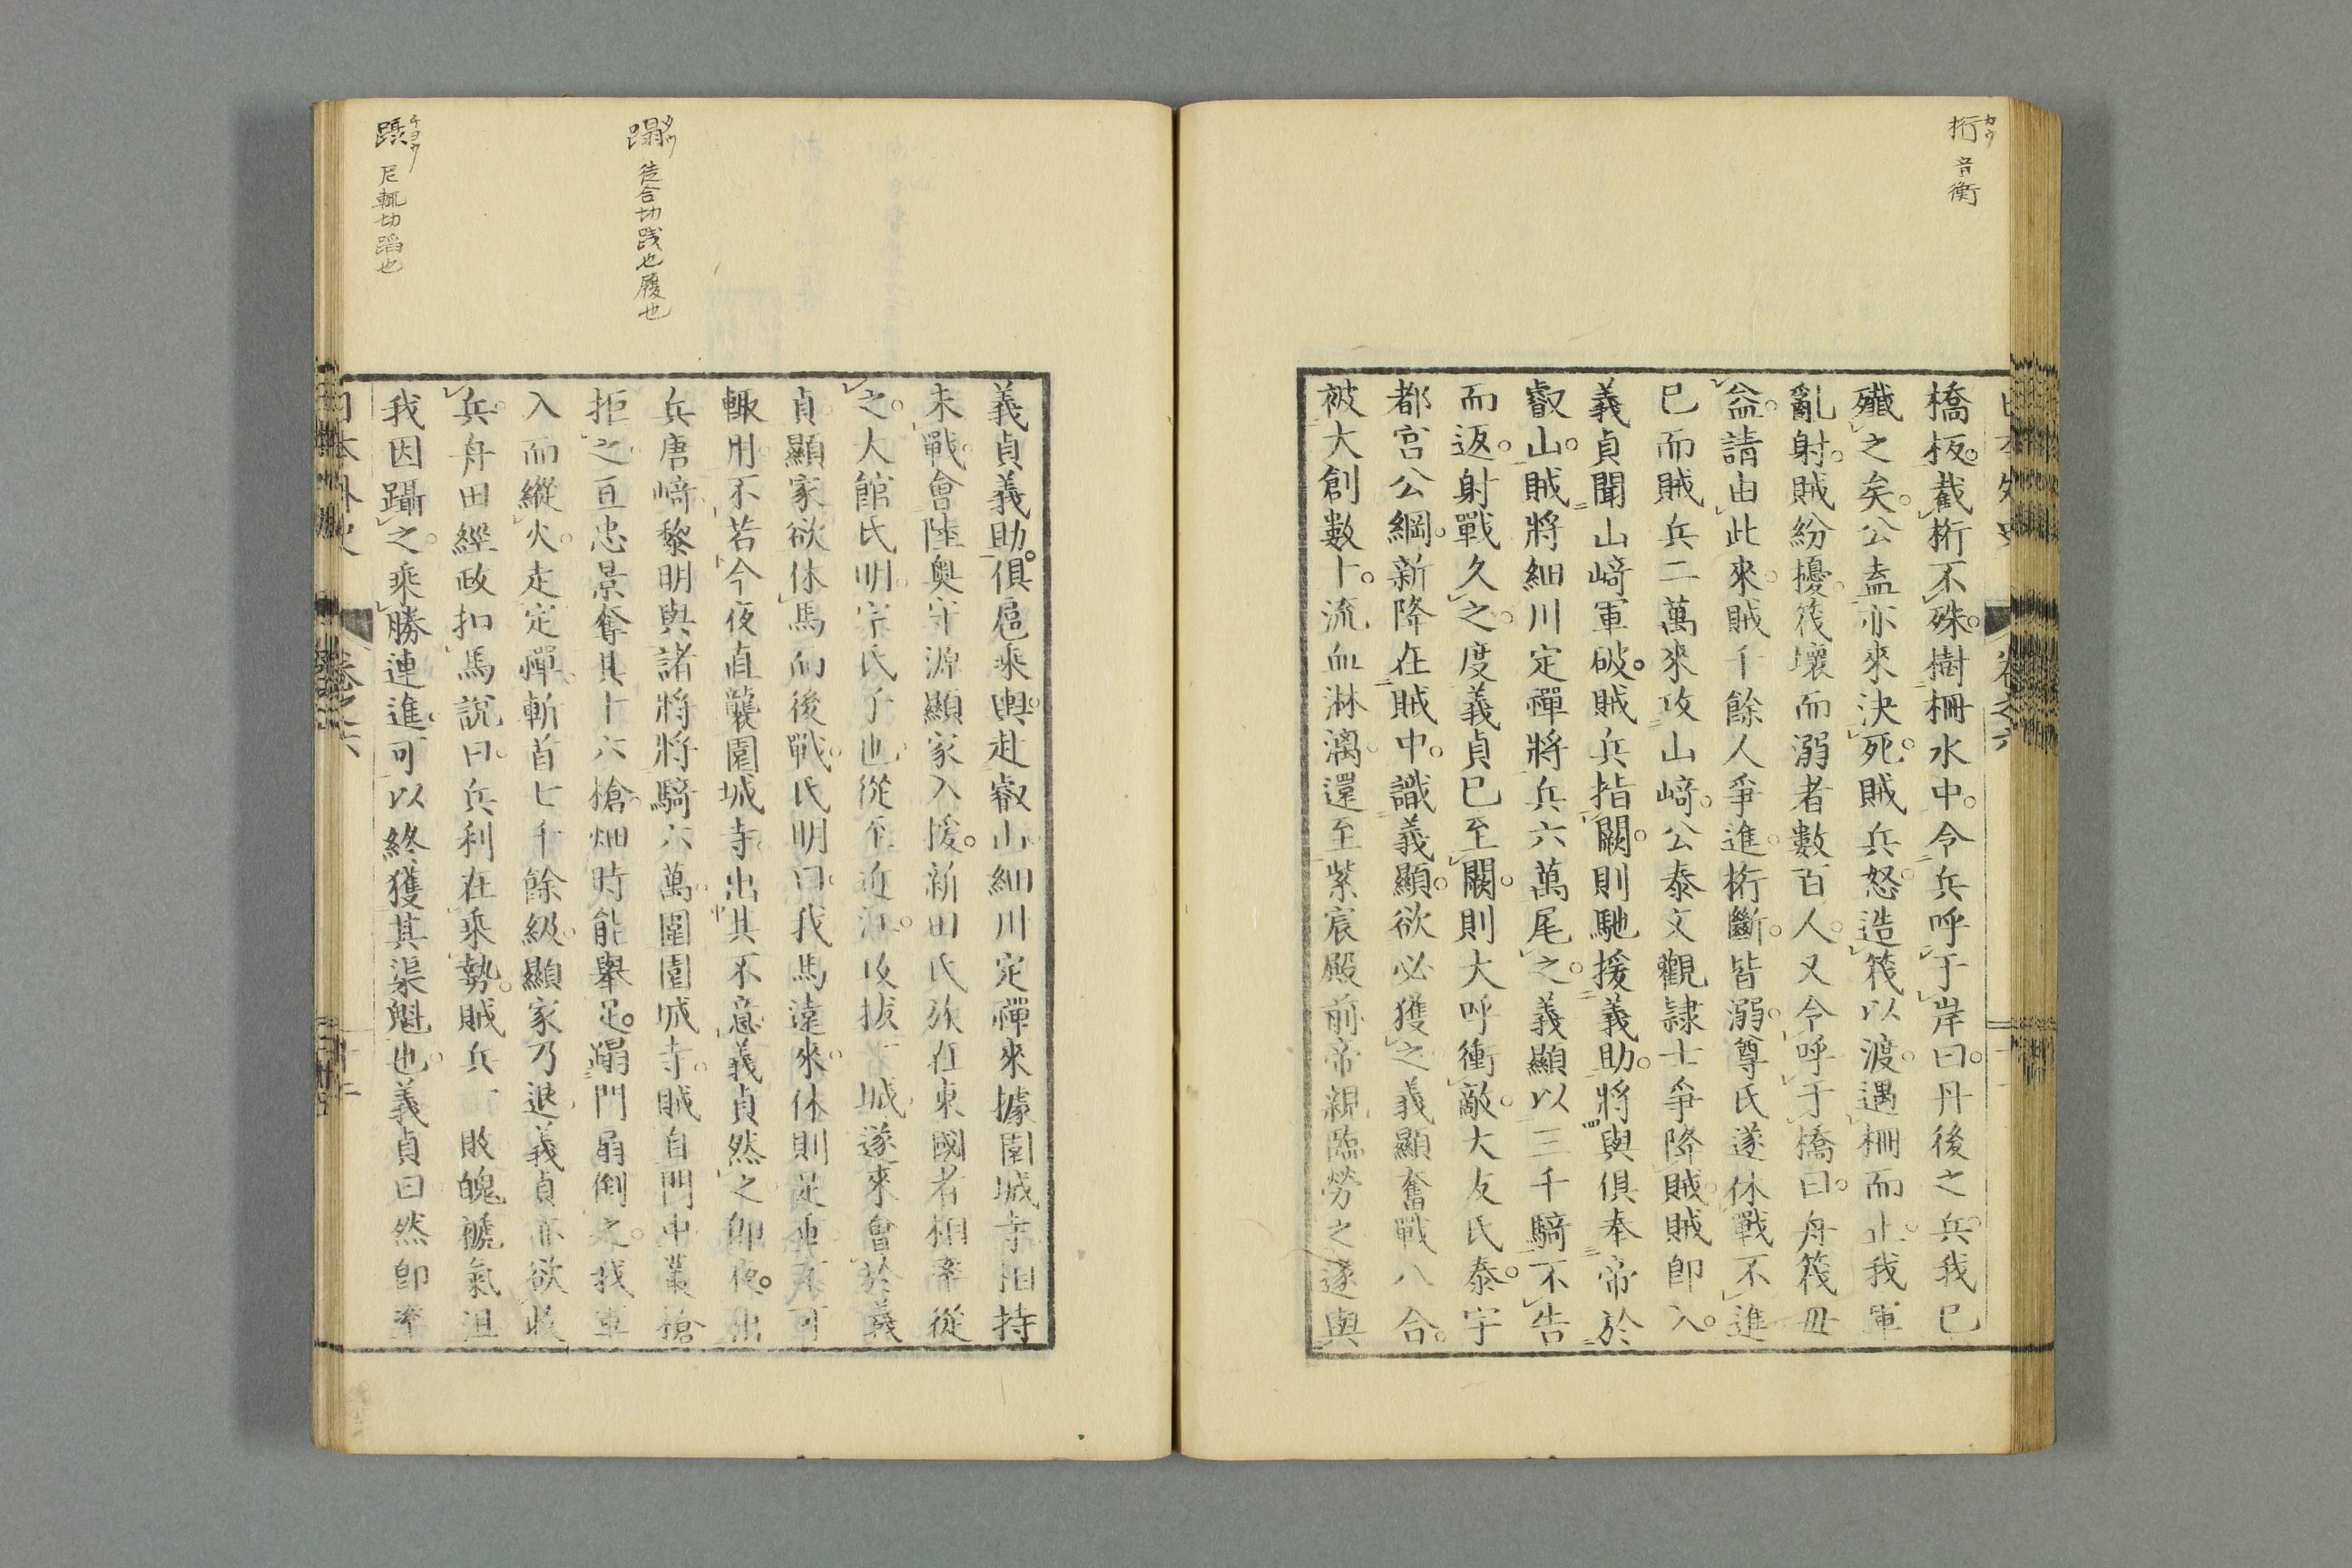 桁 カウ 音衡
日本外史 卷之六
橋板截桁不殊樹柵水中令兵呼于岸曰丹後之兵我已
殲之矣公盍亦來決死賊兵怒造筏以渡遇柵而止我軍
亂射賊紛擾筏壞而溺者數百人又令呼于橋曰舟筏毋
益請由此來賊千餘人爭進桁斷皆溺尊氏遂休戰不進
已而賊兵二萬來攻山﨑公泰文觀隷士爭降賊賊卽入
義貞聞山﨑軍破賊兵指闕則馳援義助將與俱奉帝於
叡山賊將細川定禪將兵六萬尾之義顯以三千騎不告
而返射戰久之度義貞已至闕則大呼衝敵大友氏泰宇
都宮公綱新降在賊中識義顯欲必獲之義顯奮戰八合
被大創數十流血淋漓還至紫宸殿前帝親臨勞之遂與
蹋 タウ 徒合切踐也履也
躡 チヨウ 尼輒切蹈也
義貞義助俱扈乘輿赴叡山細川定禪來據園城寺相持
未戰會陸奧守源顯家入援新田氏族在東國者相率從
之大館氏明宗氏子也從至近江攻拔一城遂來會於義
貞顯家欲休馬而後戰氏明曰我馬遠來休則足重不可
輙用不若今夜直襲園城寺出其不意義貞然之卽夜出
兵唐﨑黎明與諸將將騎六萬圍園城寺賊自門中叢槍
拒之亘忠景奪其十六槍畑時能舉足蹋門扉倒之我軍
入而縱火走定禪斬首七千餘級顯家乃退義貞亦欲收
兵舟田經政扣馬說曰兵利在乘勢賊兵一敗魄褫氣沮
我因躡之乘勝連進可以終獲其渠魁也義貞曰然卽率
日本外史 卷之六